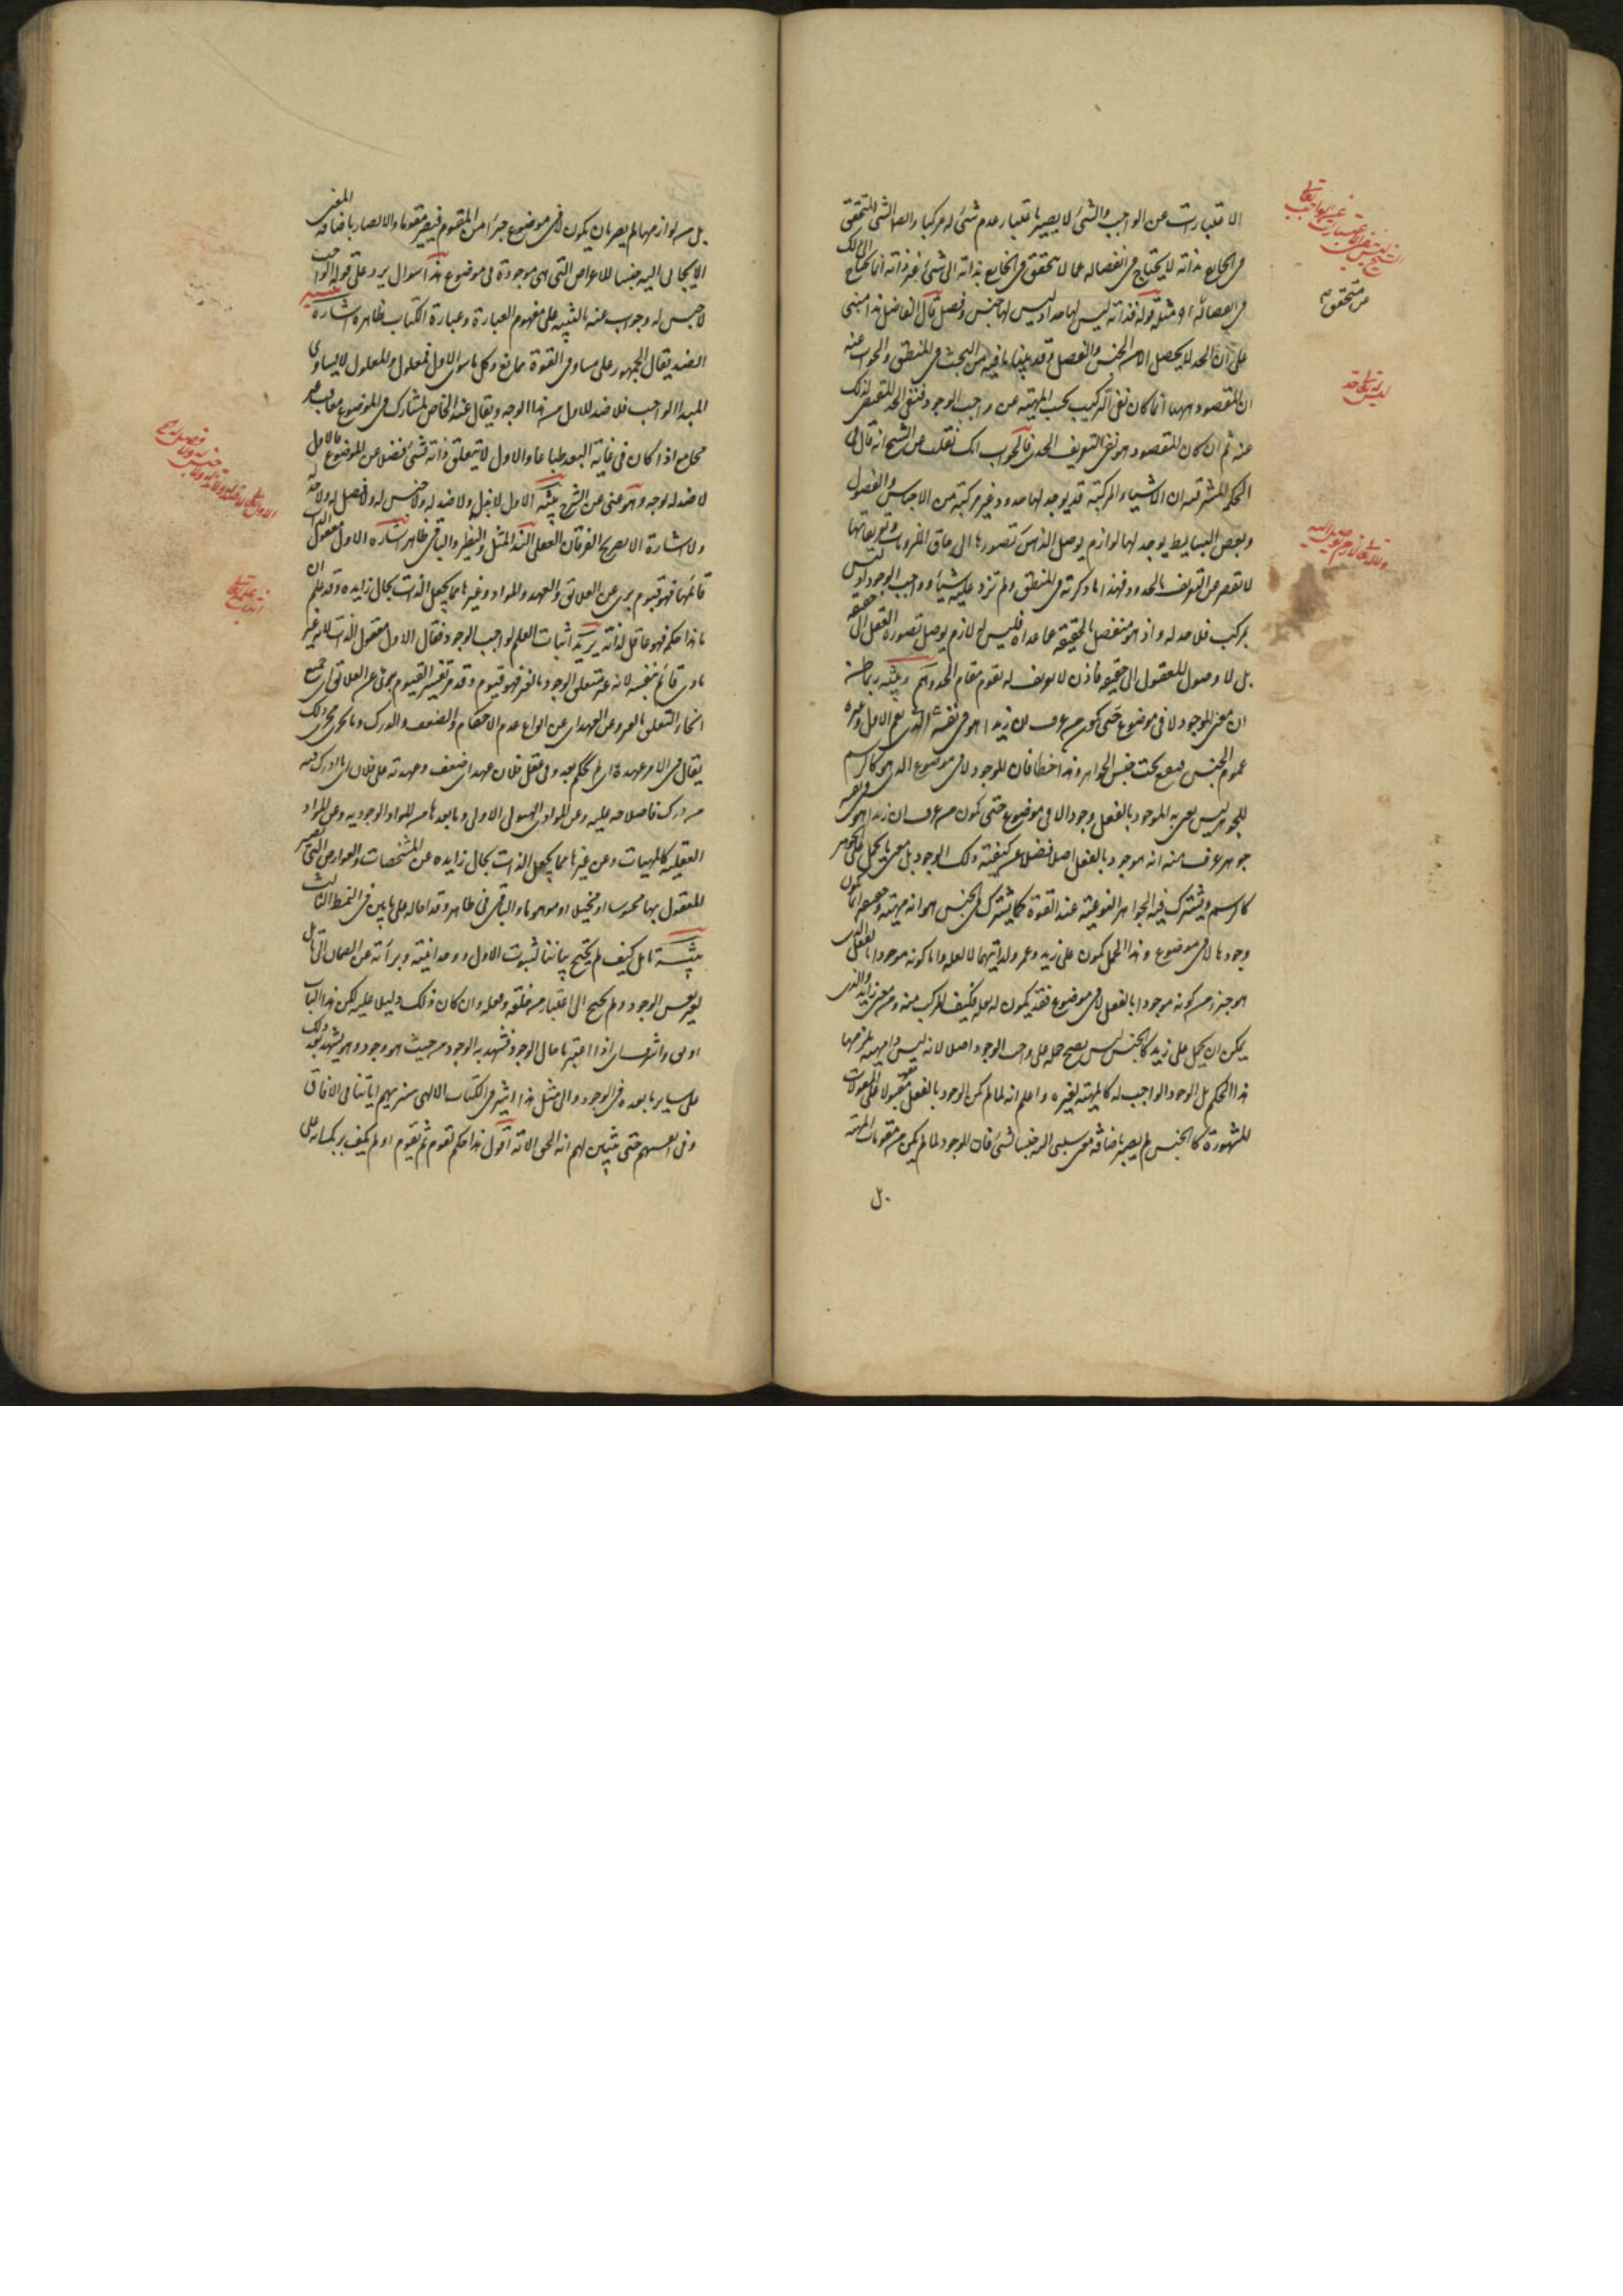 الاعتبارات عن الواجب والشئ لا يصير باعتبار عدم شئ له مركبا وايضا الشئ المتحقق
فى الخارج بذاته لا يحتاج فى انفصاله عما لا يتحقق فى الخارج بذاته الى شئ غير ذاته انما يحتاج الى ذلك
فى انفصاله مثله قوله فذاته ليس لها حد اذ ليس لها جنس وفصل قال الفاضل هذا مبنى
على ان الحد لا يحصل الا من الجنس والفصل وقد بينا ما فيه من البحث فى المنطق والجواب عنه
ان المقصود ههنا انما كان نفى التركيب بحسب المهية عن واجب الوجود فنفى الحد المقتضى لذلك
عنه ثم ان كان المقصود هو نفى التعريف الحدى فالجواب انك نقلت عن الشيخ انه قال فى
الحكمة المشرقية ان الاشياء المركبة قد يوجد لها حدود غير مركبة من الاجناس والفصول
وبعض البسايط يوجد لها لوازم يوصل الذهن تصورها الى حاق الملزومات وتعريفاتها
لا تقصر عن التعريف بالحدود فهذا ما ذكرته فى المنطق ولم تزد عليه شيئا وواجب الوجود اذ ليس
بمركب فلا حد له واذ هو منفصل الحقيقة عما عداه فليس له لازم يوصل تصوره العقل الى حقيقته
بل لا وصول للعقول الى حقيقته فاذن لا تعريف له يقوم مقام الحد وهم وتنبيه ربما ظن
ان معنى الموجود لا فى موضوع
عموم الجنس فيقع تحت جنس الجوهر وهذا خطا فان الموجود لا فى موضوع الذى هو كالرسم
للجوهر ليس يعنى به الموجود بالفعل وجودا لا فى موضوع حتى يكون من عرف ان زيدا هو فى نفسه
جوهر عرف منه انه موجود بالفعل اصلا فضلا عن كيفية ذلك الوجود بل معنى ما يحمل على الجوهر
كالرسم ويشترك فيه الجواهر النوعية عند القوة كما يشترك فى الجنس هو انه مهية وحقيقة انما يكون
وجودها لا فى موضوع وهذا الحمل يكون على زيد وعمرو لذاتيهما لا لعلة واما كونه موجودا بالفعل الذى
هو جزء من كونه موجودا بالفعل لا فى موضوع فقد يكون له بعلة فكيف المركب منه ومن معنى زايد فالذى
يمكن ان يحمل على زيد كالجنس ليس يصح حمله على واجب الوجود اصلا لانه ليس ذا مهية يلزمها
هذا الحكم بل الوجود الواجب له كالمهية لغيره واعلم انه لما لم يكن الوجود بالفعل مقولا على المقولات
المشهورة كالجنس لم يصر باضافة معنى سلبى اليه جنسا لشئ فان الموجود لما لم يكن من مقومات المهية
بل
ليس له تعالى حد
بل من لوازمها لم يصر بان يكون لا فى موضوع جزءا من المقوم فيصير مقوما والا لصار باضافة المعنى
الايجابى اليه جنسا للاعراض التى هى موجودة فى موضوع هذا سوال يرد على قوله الواجب
لا جنس له وجوابه عنه بالتنبيه على مفهوم العبارة وعبارة الكتاب ظاهرة اشارة
الضد يقال عند الجمهور على مساو فى القوة ممانع وكل ما سوى الاول فمعلول والمعلول لا يساوى
المبدا الواجب فلا ضد للاول من هذا الوجه ويقال عند الخاص لمشارك فى الموضوع معاقب غير
مجامع اذا كان فى غاية البعد طباعا والاول لا يتعلق ذاته بشئ فضلا عن الموضوع فالاول
لا ضد له بوجه وهو غنى عن الشرح تنبيه الاول لا ند له ولا ضد له ولا جنس له ولا فصل له ولا حد له
ولا اشارة الا بصريح العرفان العقلى الند المثل والنظير والباقى ظاهر اشارة الاول معقول الذات
قائمها فهو قيوم برى عن العلائق والعهد والمواد وغيرها مما يجعل الذات بحال زايدة وقد علم ان
ما هذا حكمه فهو عاقل لذاته يريد اثبات العلم لواجب الوجود فقال الاول معقول الذات لانه غير
مادى قائم بنفسه لانه غير متعلق الوجود بالغير فهو قيوم وقد مر تفسير القيوم برى عن العلائق اى جميع
انحاء التعلق بالغير وعن العهد اى عن انواع عدم الاحكام والضعف والدرك وما يجرى مجرى ذلك
يقال فى الامر عهدة اى لم يحكم بعد وفى عقل فلان عهدة اى ضعف وعهدته على فلان اى ما ادرك فيه
من درك فاصلاحه عليه وعن المواد اى الهيولى الاولى وما بعدها من المواد الوجودية وعن المواد
العقلية كالمهيات وعن غيرها مما يجعل الذات بحال زايدة عن المشخصات والعوارض التى يصير
المعقول بها محسوسا او متخيلا او موهوما والباقى ظاهر وقد احاله على ما بين فى النمط الثالث
تنبيه تامل كيف لم يحتج بياننا لثبوت الاول ووحدانيته وبراءته عن الصمات الى تامل
لغير نفس الوجود ولم يحتج الى اعتبار من خلقه وفعله وان كان ذلك دليلا عليه لكن هذا الباب
اوثق واشرف اى اذا اعتبرنا حال الوجود فشهد به الوجود من حيث هو وجود وهو يشهد بعد ذلك
على ساير ما بعده فى الوجود والى مثل هذا اشير فى الكتاب الالهى سنريهم اياتنا فى الافاق
وفى انفسهم حتى يتبين لهم انه الحق الاية اقول هذا حكم لقوم ثم يقول اولم يكف بربك انه على